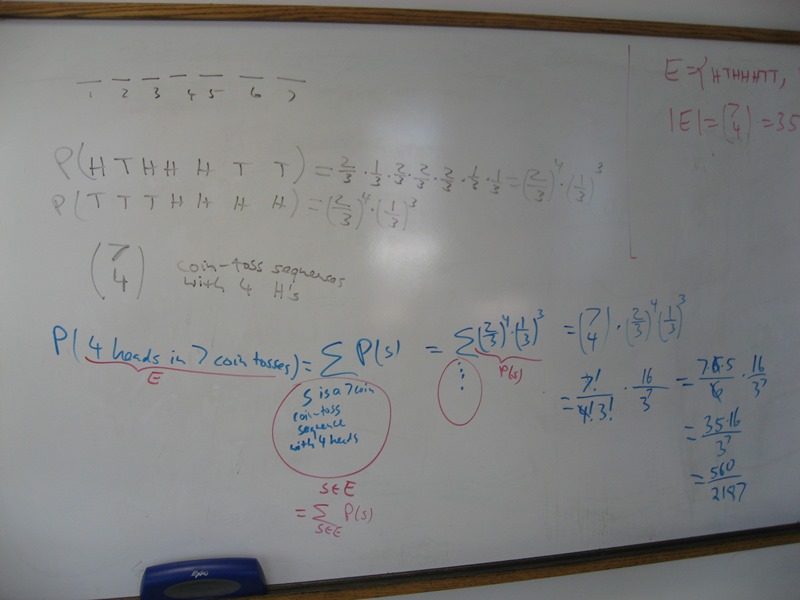 1 2 3 4 5 6 7
P(H T H H H T T) = 2/3 · 1/3 · 2/3 · 2/3 · 2/3 · 1/3 · 1/3 = (2/3)^4 · (1/3)^3
P(T T T H H H H) = (2/3)^4 · (1/3)^3
(7 4) coin-toss sequences
with 4 H's
P(4 heads in 7 coin tosses) = ∑ P(s) = ∑ (2/3)^4 · (1/3)^3 = (7 4) · (2/3)^4 (1/3)^3
E
P(s)
s is a 7 coin
coin-toss
sequence
with 4 heads
⋮
s∈E
= ∑ P(s)
s∈E
= 7!/4!3! · 16/3^7 = 7·6·5/6 · 16/3^7
= 35·16/3^7
= 560/2187
E = {HTHHHTT,
|E| = (7 4) = 35
EXPO